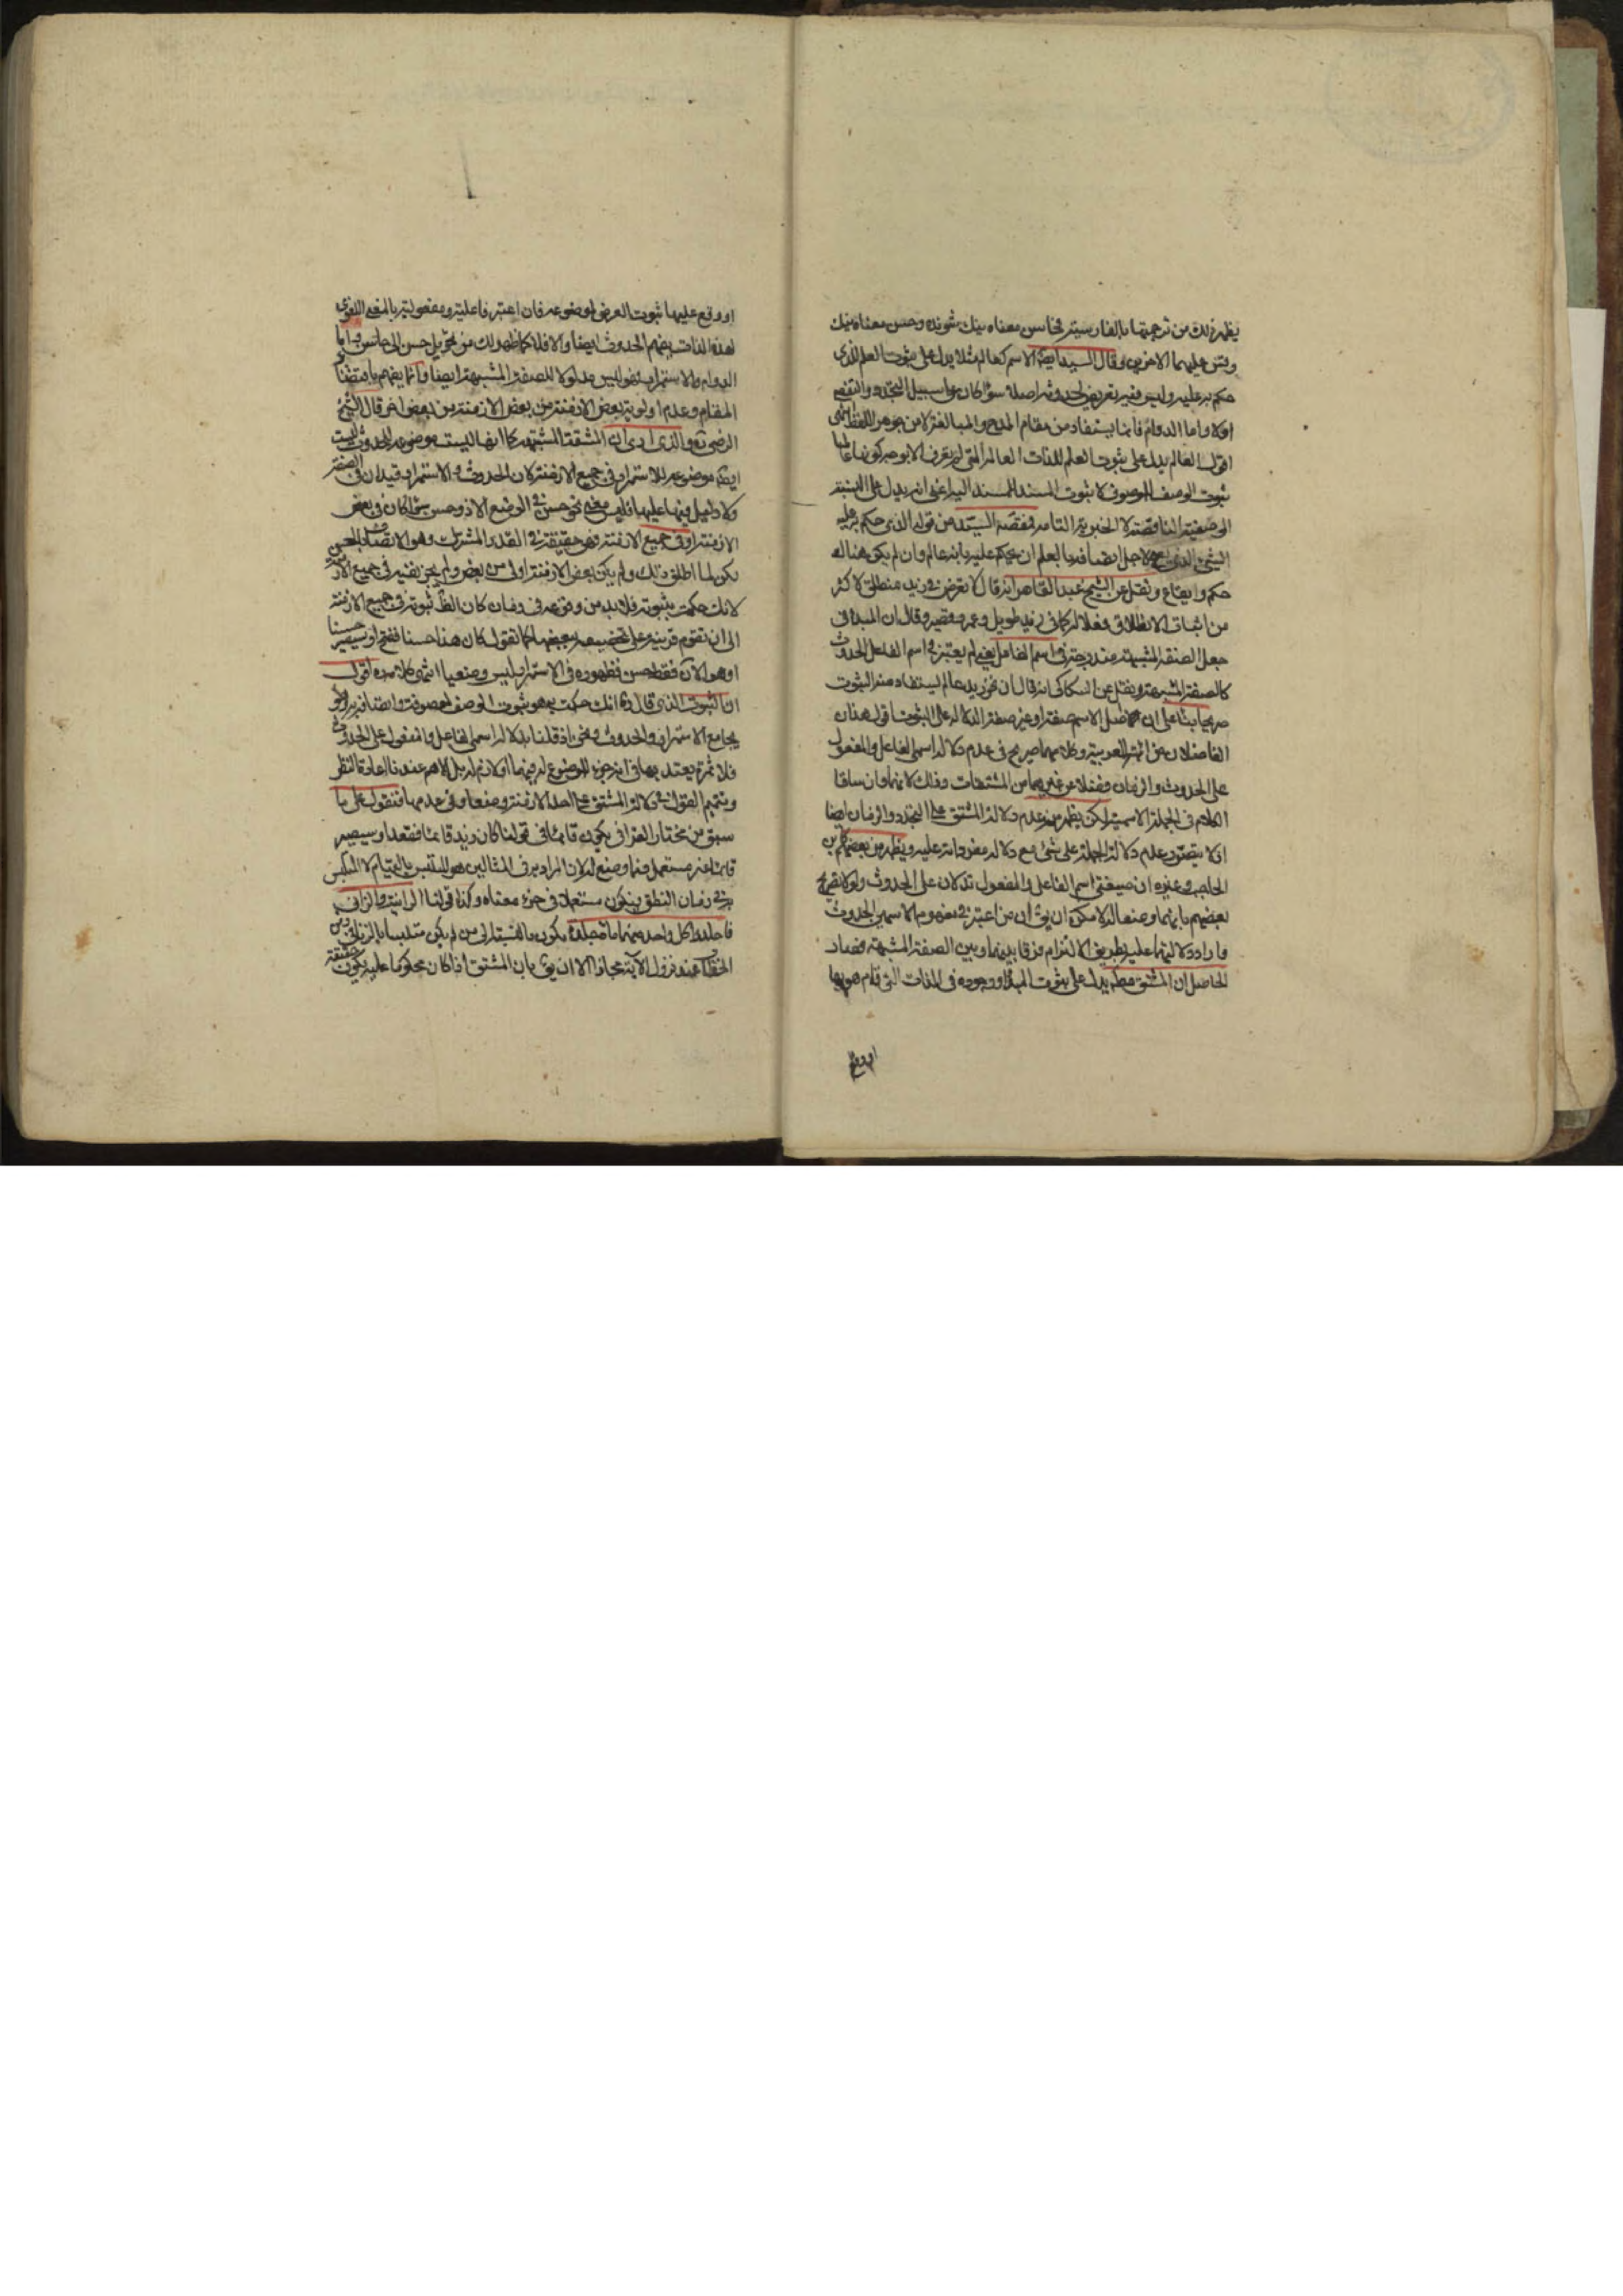 يظهر ذلك من ترجمتها بالفارسية فحاسن معناه نيك شونده وحسن معناه نيك
وقس عليهما الاخرين وقال السيد ايضا الاسم كعالم مثلا يدل على ثبوت العلم للذي
حكم به عليه وليس فيه تعرض لحدوثه اصلا سواء كان على سبيل التجدد والتقضي
اولا واما الدوام فانما يستفاد من مقام المدح والمبالغة لا من جوهر اللفظ انتهى
اقول العالم يدل على ثبوت العلم للذات العالمة التي لم يعرف الا بوجه كونها عالما
ثبوت الوصف للموصوف لا ثبوت المسند للمسند اليه اعني انه يدل على النسبة
الوصفية الناقصة لا الخبرية التامة فمقصد السيد من قوله الذي حكم به عليه
الشيء الذي لاجل اتصافه بالعلم ان يحكم عليه بانه عالم وان لم يكن هناك
حكم وايقاع ونقل عن الشيخ عبد القاهر انه قال لا تعرض في زيد منطلق لاكثر
من اثبات الانطلاق فعلا له كما في زيد طويل وعمرو قصير وقال ان المبدء في
جعل الصفة المشبهة مندرجة في اسم الفاعل يعني لم يعتبر في اسم الفاعل الحدوث
كالصفة المشبهة ونقل عن السكاكي انه قال ان نحو زيد عالم يستفاد منه الثبوت
صريحا بناء على ان اصل الاسم صفة او غير صفة الدلالة على الثبوت اقول هذان
الفاضلان من ائمة العربية وكلامهما صريح في عدم دلالة اسمي الفاعل والمفعول
على الحدوث والزمان فضلا عن غيرهما من المشتقات وذلك لانهما وان ساقا
الكلام في الجملة الاسمية لكن يظهر منه عدم دلالة المشتق على التجدد والزمان ايضا
اذ لا يتصور عدم دلالة الجملة على شيء مع دلالة مفرداته عليه ويظهر من بعضهم كابن
الحاجب وغيره ان صيغتي اسم الفاعل والمفعول تدلان على الحدوث ولولا تصريح
بعضهم بانهما وضعا له لامكن ان يق ان من اعتبر في مفهوم الاسمين الحدوث
فاراد دلالتهما عليه بطريق الالتزام فرقا بينهما وبين الصفة المشبهة فصار
الحاصل ان المشتق مط يدل على ثبوت المبدء ووجوده في الذات التي قام هو بها
او وقع
او وقع عليها ثبوت العرض لموضوعه فان اعتبر فاعليته ومفعوليته بالمعنى اللغوي
لهذه الذات يفهم الحدوث ايضا والا فلا كما ظهر لك من تحويل حسن الى حاسن واما
الدوام والاستمرار فهو ليس مدلولا للصفة المشبهة ايضا وانما يفهم باقتضاء
المقام وعدم اولوية بعض الازمنة من بعض الازمنة من بعض اخر قال الشيخ
الرضي ره والذي ارى ان المشقة المشبهة كما انها ليست موضوعة للحدوث ليست
ايضا موضوعة للاستمرار في جميع الازمنة لان الحدوث والاستمرار قيدان في الصفة
ولا دليل فيها عليهما فليس معنى نحو حسن في الوضع الا ذو حسن سواء كان في بعض
الازمنة او في جميع الازمنة فهو حقيقة في القدر المشترك وهو الاتصاف بالحسن
لكن لما اطلق ذلك ولم يكن بعض الازمنة اولى من بعض ولم يجز نفيه في جميع الازمنة
لانك حكمت بثبوته فلابد من وقوعه في زمان كان الظ ثبوته في جميع الازمنة
الى ان تقوم قرينة على تخصيصه ببعضها كما تقول كان هذا حسنا فقبح او سيصير حسنا
او هو الآن فقط حسن فظهوره في الاستمرار ليس وضعيا انتهى كلامه ره اقول
اما الثبوت الذي قال ره انك حكمت به هو ثبوت الوصف لموصوفه واتصافه به وهو
يجامع الاستمرار والحدوث ونحن اذ قلنا بدلالة اسمي الفاعل والمفعول على الحدوث
فلا ثمرة يعتد بها في انه جزء الموضوع له فيهما او لازم له بل الاهم عندنا اعادة النظر
وتتميم القول في دلالة المشتق على احد الازمنة وضعا وفي عدمها فنقول على ما
سبق من مختار العراقي يكون قائما في قولنا كان زيد قائما فقعد او سيصير
قائما غير مستعمل فيما وضع له لان المراد به في المثالين هو المتلبس بالقيام لا المتلبس
به في زمان النطق فيكون مستعملا في جزء معناه وكذا قولنا الزانية والزاني
فاجلدوا كل واحد منهما مائة جلدة يكون بالنسبة الى من لم يكن متلبسا بالزنا في زمن
الخطاب عند نزول الآية مجازا الا ان يق بان المشتق اذا كان محكوما عليه يكون حقيقة